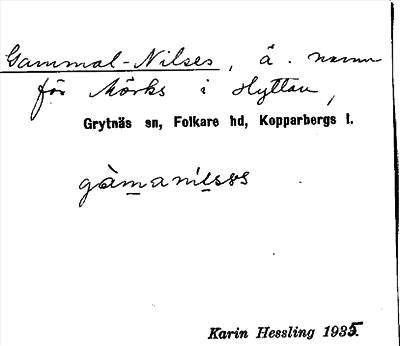 Gammal-Nilses, ä. namn
för Mörks i Hyttan,
Grytnäs sn, Folkare hd, Kopparbergs l.
gàmanilsəs
Karin Hessling 1935.